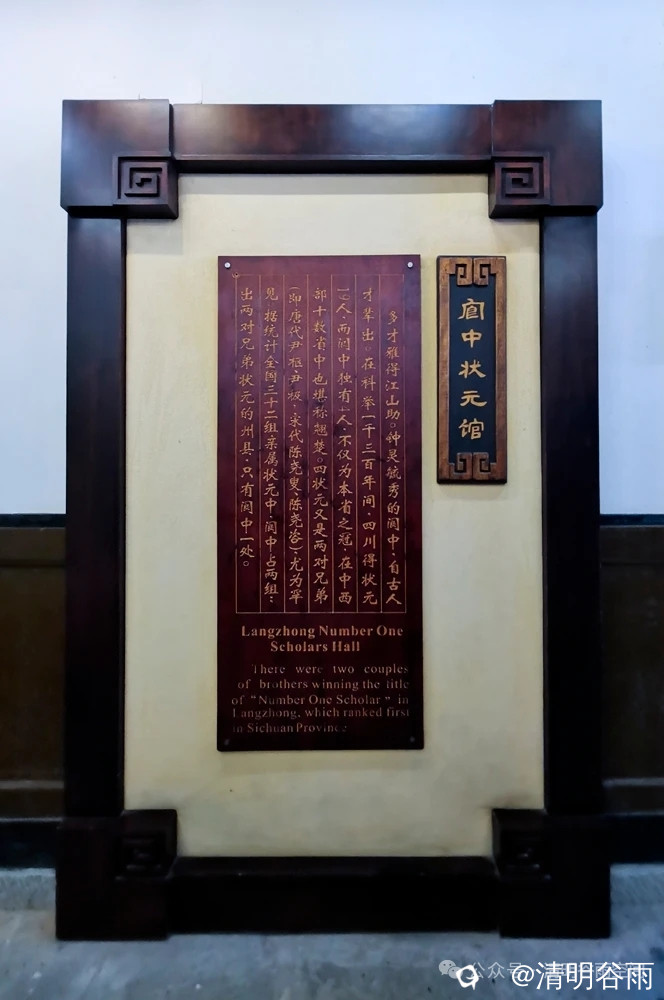 阆中状元馆
多才雅得江山助。钟灵毓秀的阆中,自古人
才辈出。在科举一千三百年间,四川得状元
19人,而阆中独有4人,不仅为本省之冠,在中西
部十数省中也堪称翘楚。四状元又是两对兄弟
(即唐代尹枢、尹极,宋代陈尧叟、陈尧咨),尤为罕
见。据统计全国三十二组亲属状元中,阆中占两组;
出两对兄弟状元的州县,只有阆中一处。
Langzhong Number One
Scholars Hall
There were two couples
of brothers winning the title
of "Number One Scholar" in
Langzhong, which ranked first
in Sichuan Province
公众号
@清明谷雨